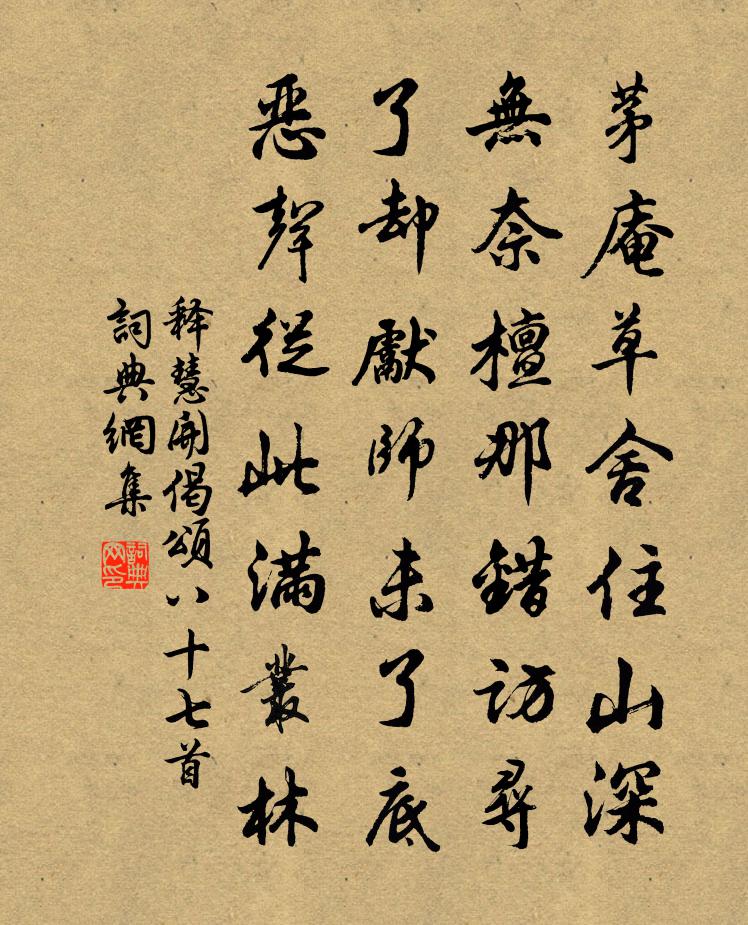 茅庵草舍住山深
無奈檀那錯訪尋
了却獻師未了底
惡聲從此滿叢林
释慧開偈頌八十七首
詞典網集
詞典
网印